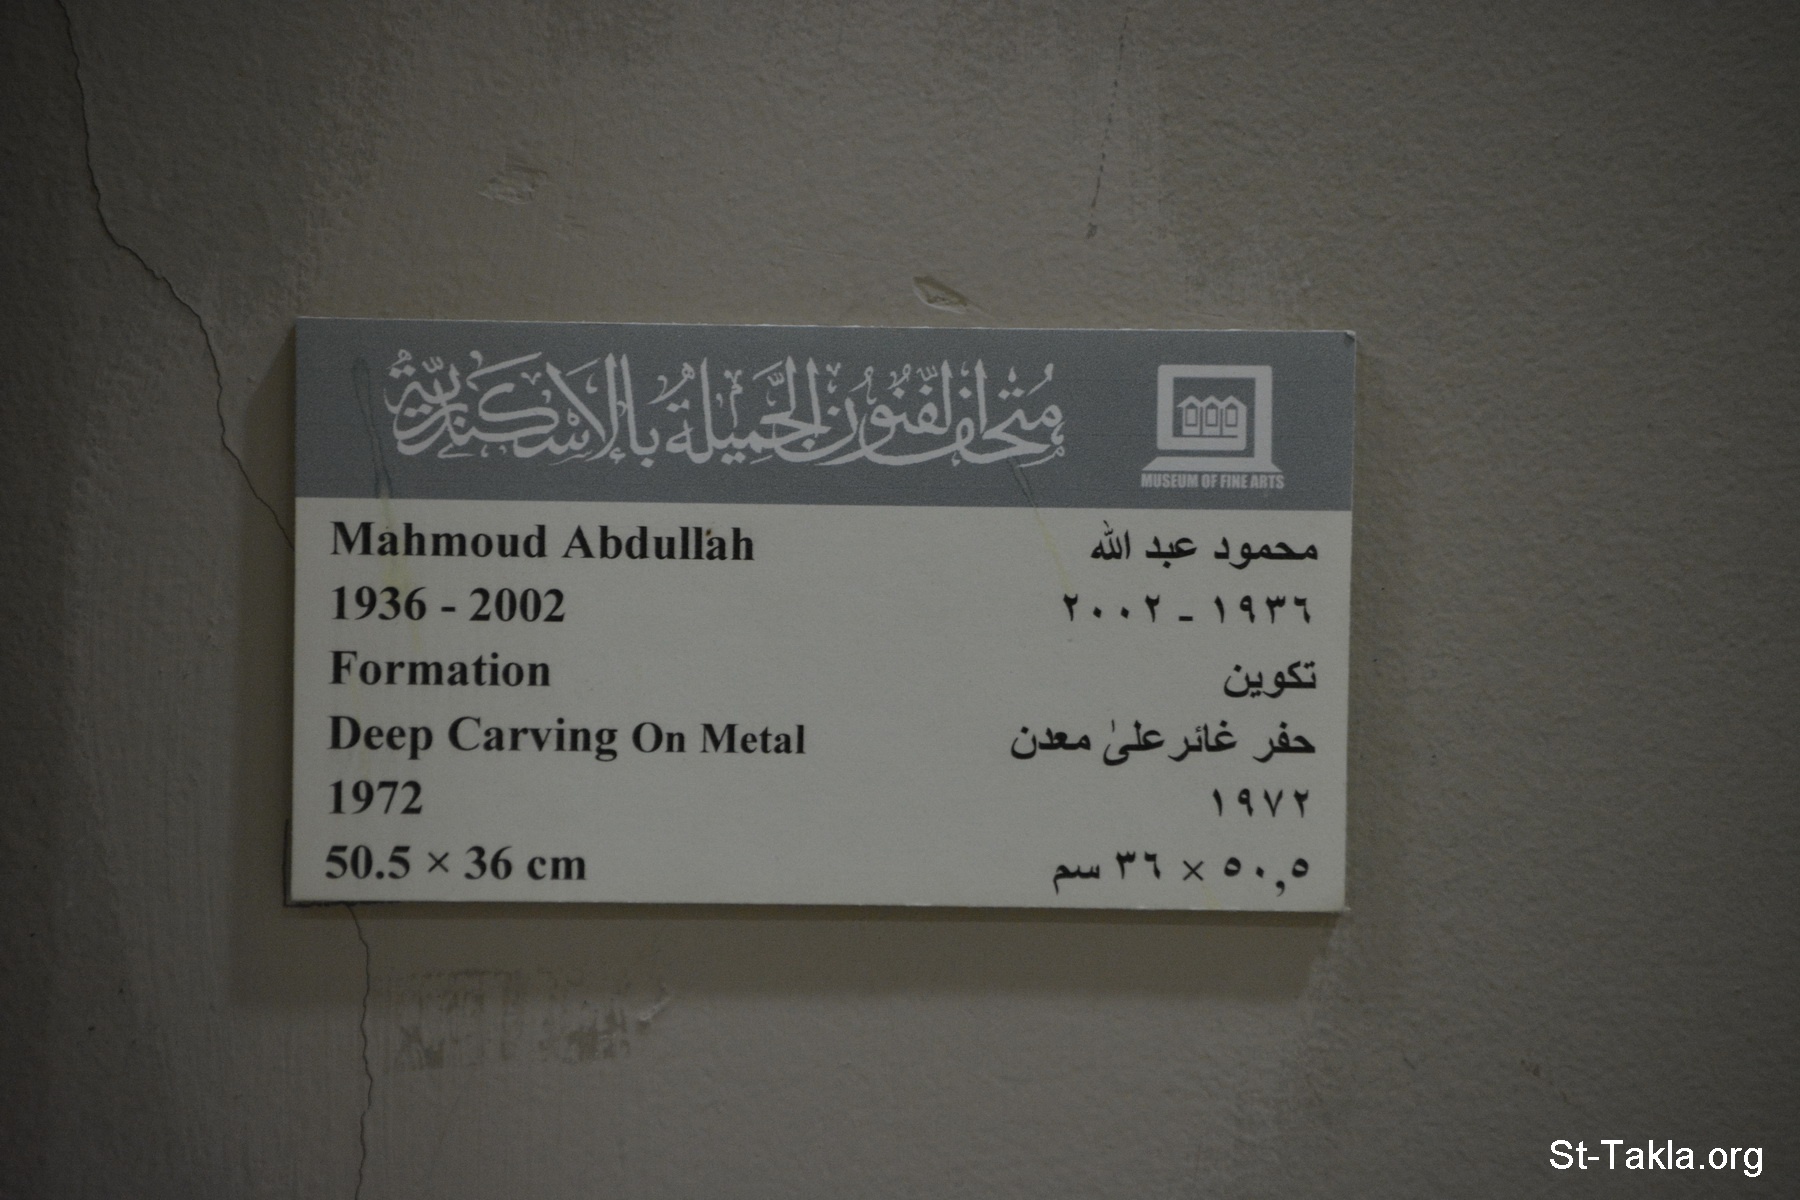 متحف الفنون الجميلة بالإسكندرية
MUSEUM OF FINE ARTS
Mahmoud Abdullah
محمود عبد الله
1936 - 2002
١٩٣٦ - ٢٠٠٢
Formation
تكوين
Deep Carving On Metal
حفر غائر على معدن
1972
١٩٧٢
50.5 × 36 cm
٥٠,٥ × ٣٦ سم
St-Takla.org